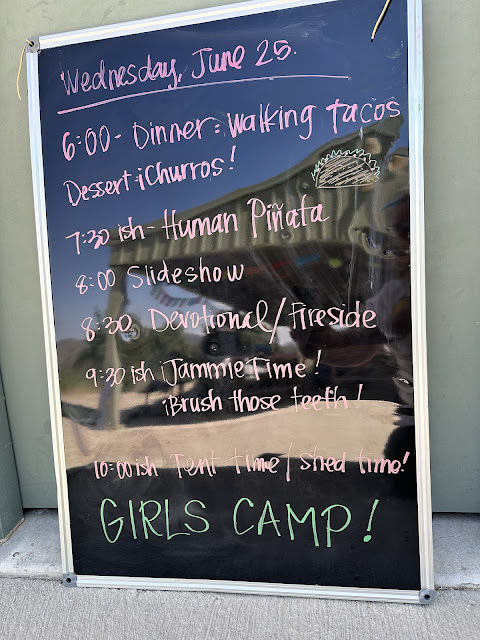 Wednesday, June 25.
6:00 - Dinner: Walking Tacos
Dessert: ¡Churros!
7:30 ish - Human Piñata
8:00 Slideshow
8:30 Devotional/Fireside
9:30 ish ¡Jammie Time!
¡Brush those teeth!
10:00 ish Tent time/shed time!
GIRLS CAMP!